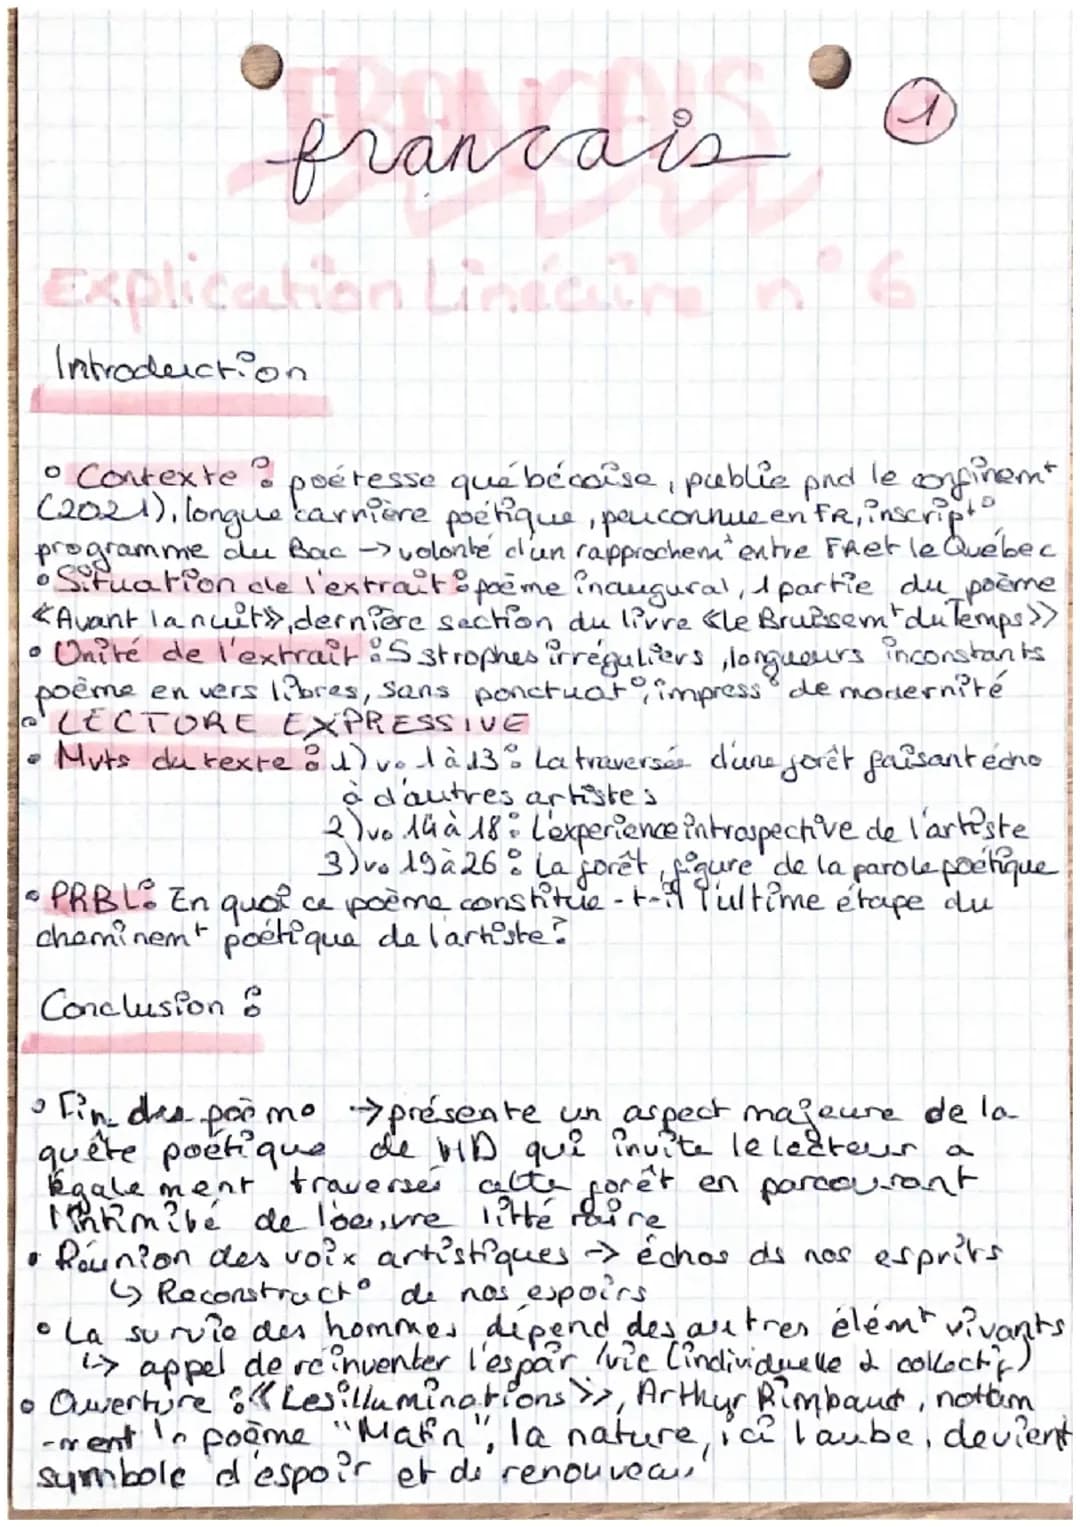 FRANCAIS
francais
1
Explication Linéaire n°6
Introduction
° Contexte : poétesse québécoise, publie pnd le confinemt
(2021), longue carrière poétique, peu connue en FR, inscript°
programme du Bac → volonté d'un rapprochemt entre FR et le Québec
° Situation de l'extrait : poème inaugural, 1 partie du poème
«Avant la nuit», dernière section du livre «le Bruissemt du Temps»
• Unité de l'extrait : 5 strophes irréguliers, longueurs inconstants
poème en vers libres, sans ponctuat°, impress° de modernité
° LECTURE EXPRESSIVE
• Mvts du texte : 1) v. 1 à 13 : La traversée d'une forêt faisant écho
à d'autres artistes
2) v. 14 à 18 : L'experience introspective de l'artiste
3) v. 19 à 26 : La forêt, figure de la parole poétique
• PRBL : En quoi ce poème constitue-t-il l'ultime étape du
cheminemt poétique de l'artiste?
Conclusion :
° Fin des poèmo → présente un aspect majeure de la
quête poétique de HD qui invite le lecteur a
également traversei cette forêt en parcourant
l'intimité de l'oeuvre littéraire
• Réunion des voix artistiques → échos ds nos esprits
↳ Reconstruct° de nos espoirs
° La survie des hommes dépend des autres élémt vivants
↳ appel de réinventer l'espoir /vie (individuelle & collectif)
° Ouverture : «Les illuminations», Arthur Rimbaut, notam
-ment le poème "Matin", la nature, ici l'aube, devient
symbole d'espoir et de renouveau